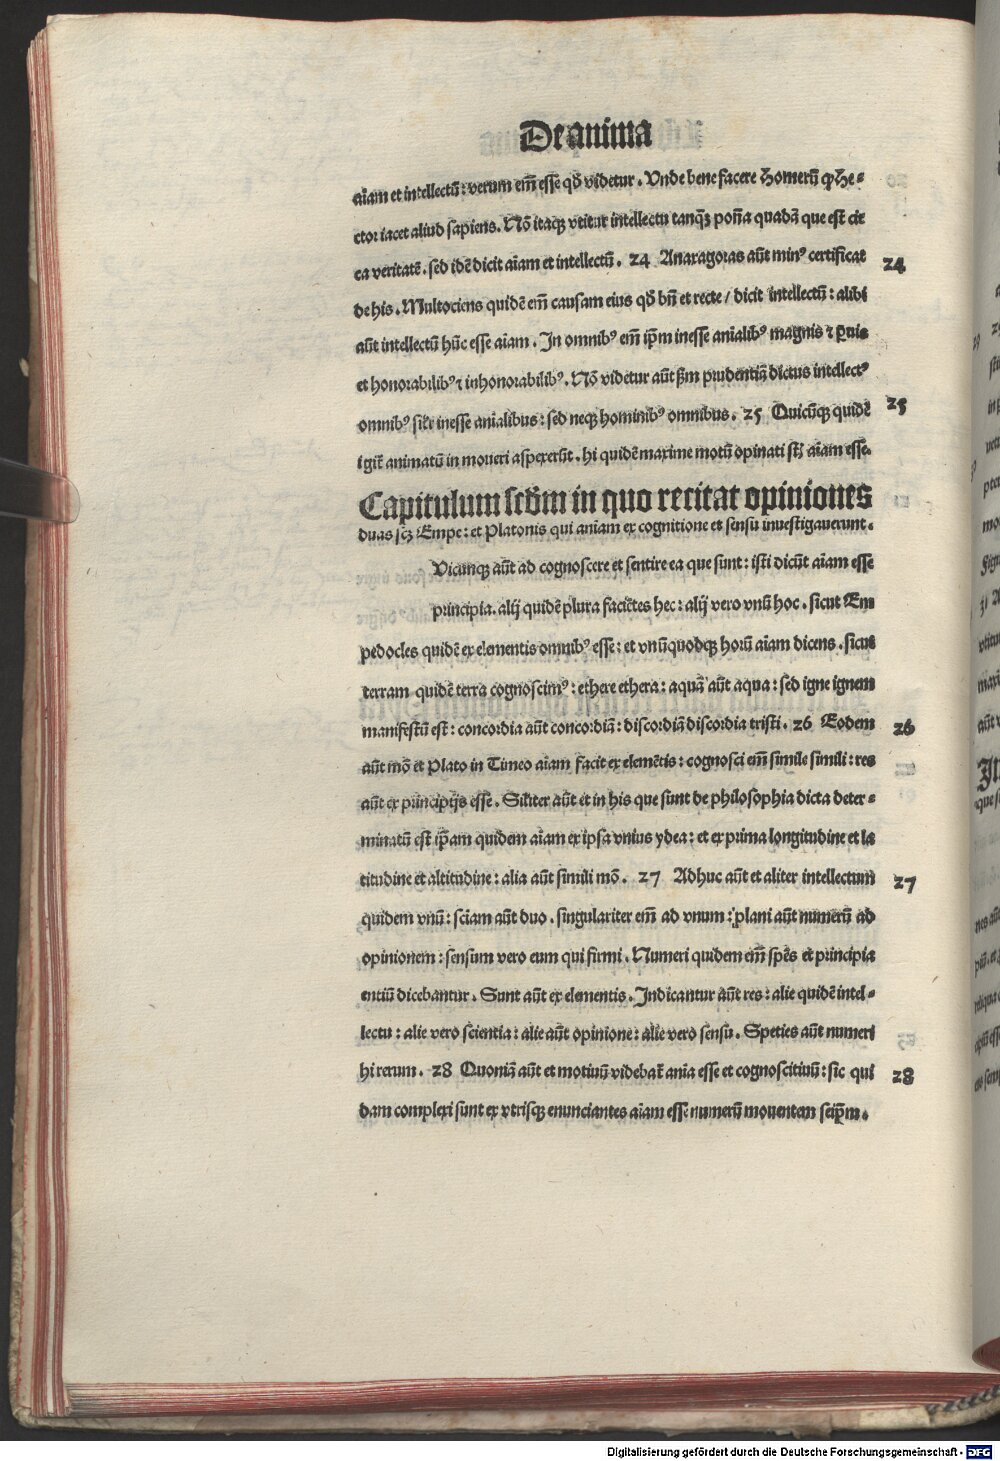 De anima
aīam et intellectū: verum em̄ esse qḋ videtur. Unde bene facere Homerū ꝙ He⸗
ctor iacet aliud sapiens. Nō itaqꝫ vtitur intellectu tanqꝫ̄ potn̄a quadā que est cir
ca veritatē. sed idē dicit aīam et intellectū. 24 Anaxagoras aūt minꝰ certificat
24
de his. Multociens quidē em̄ causam eius qḋ bn̄ et recte / dicit intellectū: alibi
aūt intellectū hūc esse aīam. In omnibꝰ em̄ ip̄m inesse anīalibꝰ magnis ⁊ ꝑuis
et honorabilibꝰ ⁊ inhonorabilibꝰ. Nō videtur aūt ẜm prudentiā dictus intellectꝰ
omnibꝰ sil̄r inesse anīalibus: sed neqꝫ hominibꝰ omnibus. 25 Quicūqꝫ quidē
25
igit̄ animatū in moueri aspexerūt. hi quidē maxime motū opinati sūt aīam esse.
Capitulum scḋm in quo recitat opiniones
duas scꝫ Empe: et Platonis qui aniam ex cognitione et sensu inuestigauerunt.
Uicunqꝫ aūt ad cognoscere et sentire ea que sunt: isti dicūt aīam esse
principia. alij quidē plura faciētes hec: alij vero vnū hoc. sicut Em
pedocles quidē ex elementis omnibꝰ esse: et vnūquodqꝫ horū aīam dicens. sicut
terram quidē terra cognoscimꝰ: ethere ethera: aquā aūt aqua: sed igne ignem
manifestū est: concordia aūt concordiā: discordiā discordia tristi. 26 Eodem
26
aūt mō et Plato in Timeo aīam facit ex elemētis: cognosci em̄ simile simili: res
aūt ex principijs esse. Sil̄iter aūt et in his que sunt de philosophia dicta deter⸗
minatū est ip̄am quidem aīam ex ipsa vnius ydea: et ex prima longitudine et la
titudine et altitudine: alia aūt simili mō. 27 Adhuc aūt et aliter intellectum
27
quidem vnū: sciam aūt duo. singulariter em̄ ad vnum: plani aūt numerū ad
opinionem: sensum vero eum qui firmi. Numeri quidem em̄ spēs et principia
entiū dicebantur. Sunt aūt ex elementis. Indicantur aūt res: alie quidē intel⸗
lectu: alie vero scientia: alie aūt opinione: alie vero sensu. Speties aūt numeri
hi rerum. 28 Quoniā aūt et motiuū videbat̄ ania esse et cognoscitiuū: sic qui
28
dam complexi sunt ex vtrisqꝫ enunciantes aīam esse numerū mouentem seip̄m.
Digitalisierung gefördert durch die Deutsche Forschungsgemeinschaft - DFG